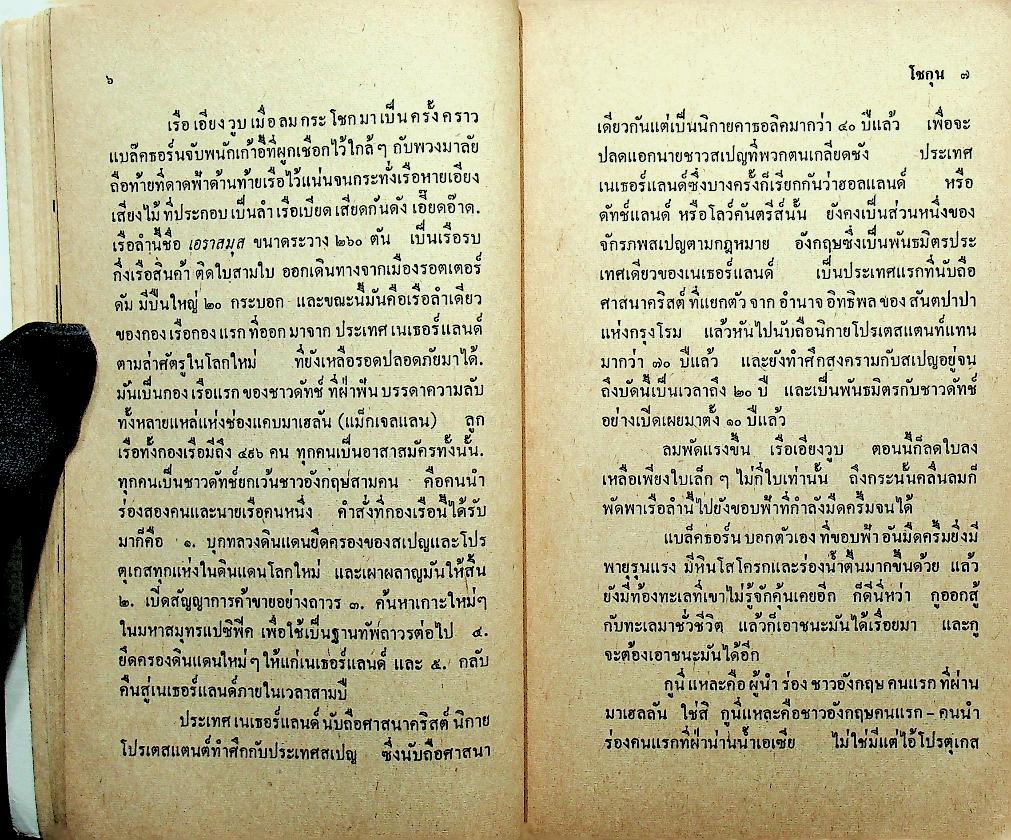 ๖
เรือเอียงวูบเมื่อลมกระโชกมาเป็นครั้งคราว
แบล๊คธอร์นจับพนักเก้าอี้ที่ผูกเชือกไว้ใกล้ๆ กับพวงมาลัย
ถือท้ายที่ดาดฟ้าด้านท้ายเรือไว้แน่นจนกระทั่งเรือหายเอียง
เสียงไม้ที่ประกอบเป็นลำเรือเบียดเสียดกันดังเอี๊ยดอ๊าด.
เรือลำนี้ชื่อ เอราสมุส ขนาดระวาง ๒๖๐ ตัน เป็นเรือรบ
กึ่งเรือสินค้า ติดใบสามใบ ออกเดินทางจากเมืองรอตเตอร์
ดัม มีปืนใหญ่ ๒๐ กระบอก และขณะนี้มันคือเรือลำเดียว
ของกองเรือกองแรกที่ออกมาจากประเทศเนเธอร์แลนด์
ตามล่าศัตรูในโลกใหม่ ที่ยังเหลือรอดปลอดภัยมาได้.
มันเป็นกองเรือแรกของชาวดัทช์ ที่ฝ่าฟันบรรดาความลับ
ทั้งหลายแหล่แห่งช่องแคบมาเฮลัน (แม็กเจลแลน) ลูก
เรือทั้งกองเรือมีถึง ๔๙๖ คน ทุกคนเป็นอาสาสมัครทั้งนั้น.
ทุกคนเป็นชาวดัทช์ยกเว้นชาวอังกฤษสามคน คือคนนำ
ร่องสองคนและนายเรือคนหนึ่ง คำสั่งที่กองเรือนี้ได้รับ
มาก็คือ ๑. บุกทลวงดินแดนยึดครองของสเปญและโปร
ตุเกสทุกแห่งในดินแดนโลกใหม่ และเผาผลาญมันให้สิ้น
๒. เปิดสัญญาการค้าขายอย่างถาวร ๓. ค้นหาเกาะใหม่ๆ
ในมหาสมุทรแปซิฟิค เพื่อใช้เป็นฐานทัพถาวรต่อไป ๔.
ยึดครองดินแดนใหม่ๆ ให้แก่เนเธอร์แลนด์ และ ๕. กลับ
คืนสู่เนเธอร์แลนด์ภายในเวลาสามปี
ประเทศเนเธอร์แลนด์นับถือศาสนาคริสต์ นิกาย
โปรเตสแตนต์ทำศึกกับประเทศสเปญ ซึ่งนับถือศาสนา
โชกุน ๗
เดียวกันแต่เป็นนิกายคาธอลิคมากว่า ๔๐ ปีแล้ว เพื่อจะ
ปลดแอกนายชาวสเปญที่พวกตนเกลียดชัง ประเทศ
เนเธอร์แลนด์ซึ่งบางครั้งก็เรียกกันว่าฮอลแลนด์ หรือ
ดัทช์แลนด์ หรือโลว์คันตรีส์นั้น ยังคงเป็นส่วนหนึ่งของ
จักรภพสเปญตามกฎหมาย อังกฤษซึ่งเป็นพันธมิตรประ
เทศเดียวของเนเธอร์แลนด์ เป็นประเทศแรกที่นับถือ
ศาสนาคริสต์ ที่แยกตัว จาก อำนาจ อิทธิพล ของ สันตปาปา
แห่งกรุงโรม แล้วหันไปนับถือนิกายโปรเตสแตนท์แทน
มากว่า ๗๐ ปีแล้ว และยังทำศึกสงครามกับสเปญอยู่จน
ถึงบัดนี้เป็นเวลาถึง ๒๐ ปี และเป็นพันธมิตรกับชาวดัทช์
อย่างเปิดเผยมาตั้ง ๑๐ ปีแล้ว
ลมพัดแรงขึ้น เรือเอียงวูบ ตอนนี้ก็ลดใบลง
เหลือเพียงใบเล็ก ๆ ไม่กี่ใบเท่านั้น ถึงกระนั้นคลื่นลมก็
พัดพาเรือลำนี้ไปยังขอบฟ้าที่กำลังมืดครึ้มจนได้
แบล็คธอร์น บอกตัวเอง ที่ขอบฟ้า อันมืดครึ้มยิ่งมี
พายุรุนแรง มีหินโสโครกและร่องน้ำตื้นมากขึ้นด้วย แล้ว
ยังมีท้องทะเลที่เขาไม่รู้จักคุ้นเคยอีก ก็ดีนี่หว่า กูออกสู้
กับทะเลมาชั่วชีวิต แล้วก็เอาชนะมันได้เรื่อยมา และกู
จะต้องเอาชนะมันได้อีก
กูนี่ แหละคือ ผู้นำ ร่อง ชาวอังกฤษ คนแรก ที่ผ่าน
มาเฮลลัน ใช่สิ กูนี่แหละคือชาวอังกฤษคนแรก – คนนำ
ร่องคนแรกที่ฝ่าน่านน้ำเอเซีย ไม่ใช่มีแต่ไอ้โปรตุเกส